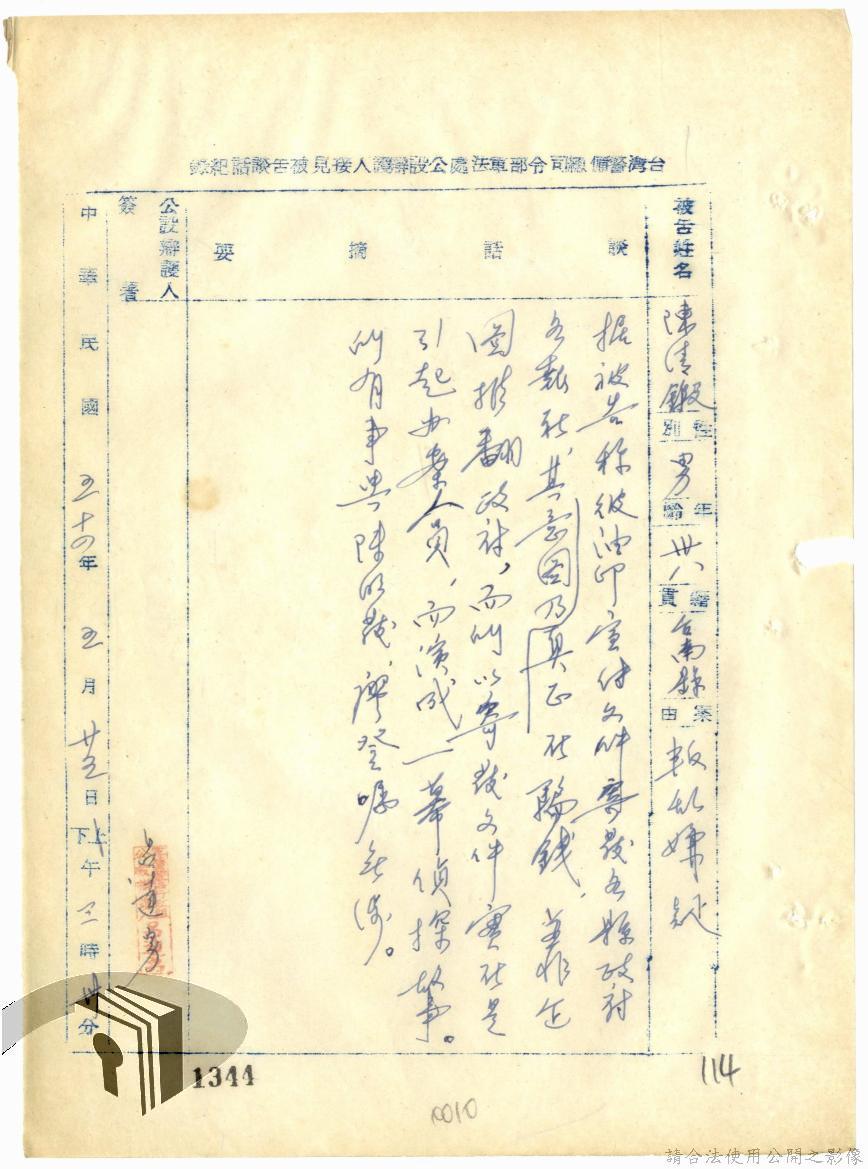 台灣警備總司令部軍法處公設辯護人接見被告談話紀錄
被告姓名 陳清鍛 性別 男 年齡 卅八 籍貫 台南縣 案由 叛亂嫌疑
談話摘要
據被告稱彼油印宣傳文件寄發各縣政府
各報社,其意圖乃真正在騙錢,並非企
圖推翻政府,而所以寄發文件實在是
引起办案人員,而演成一幕偵探故事。
所有事與陳 發,廖登 無涉。
公設辯護人
簽署
中華民國五十四年五月廿五日上下午三時 分
1344
114
0010
請合法使用公開之影像